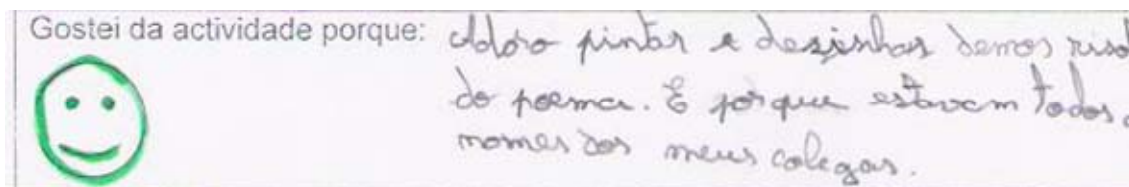 Gostei da actividade porque: Adoro pintar e desenhar demos
do poema. E porque estavam todos
nomes dos meus colegas.